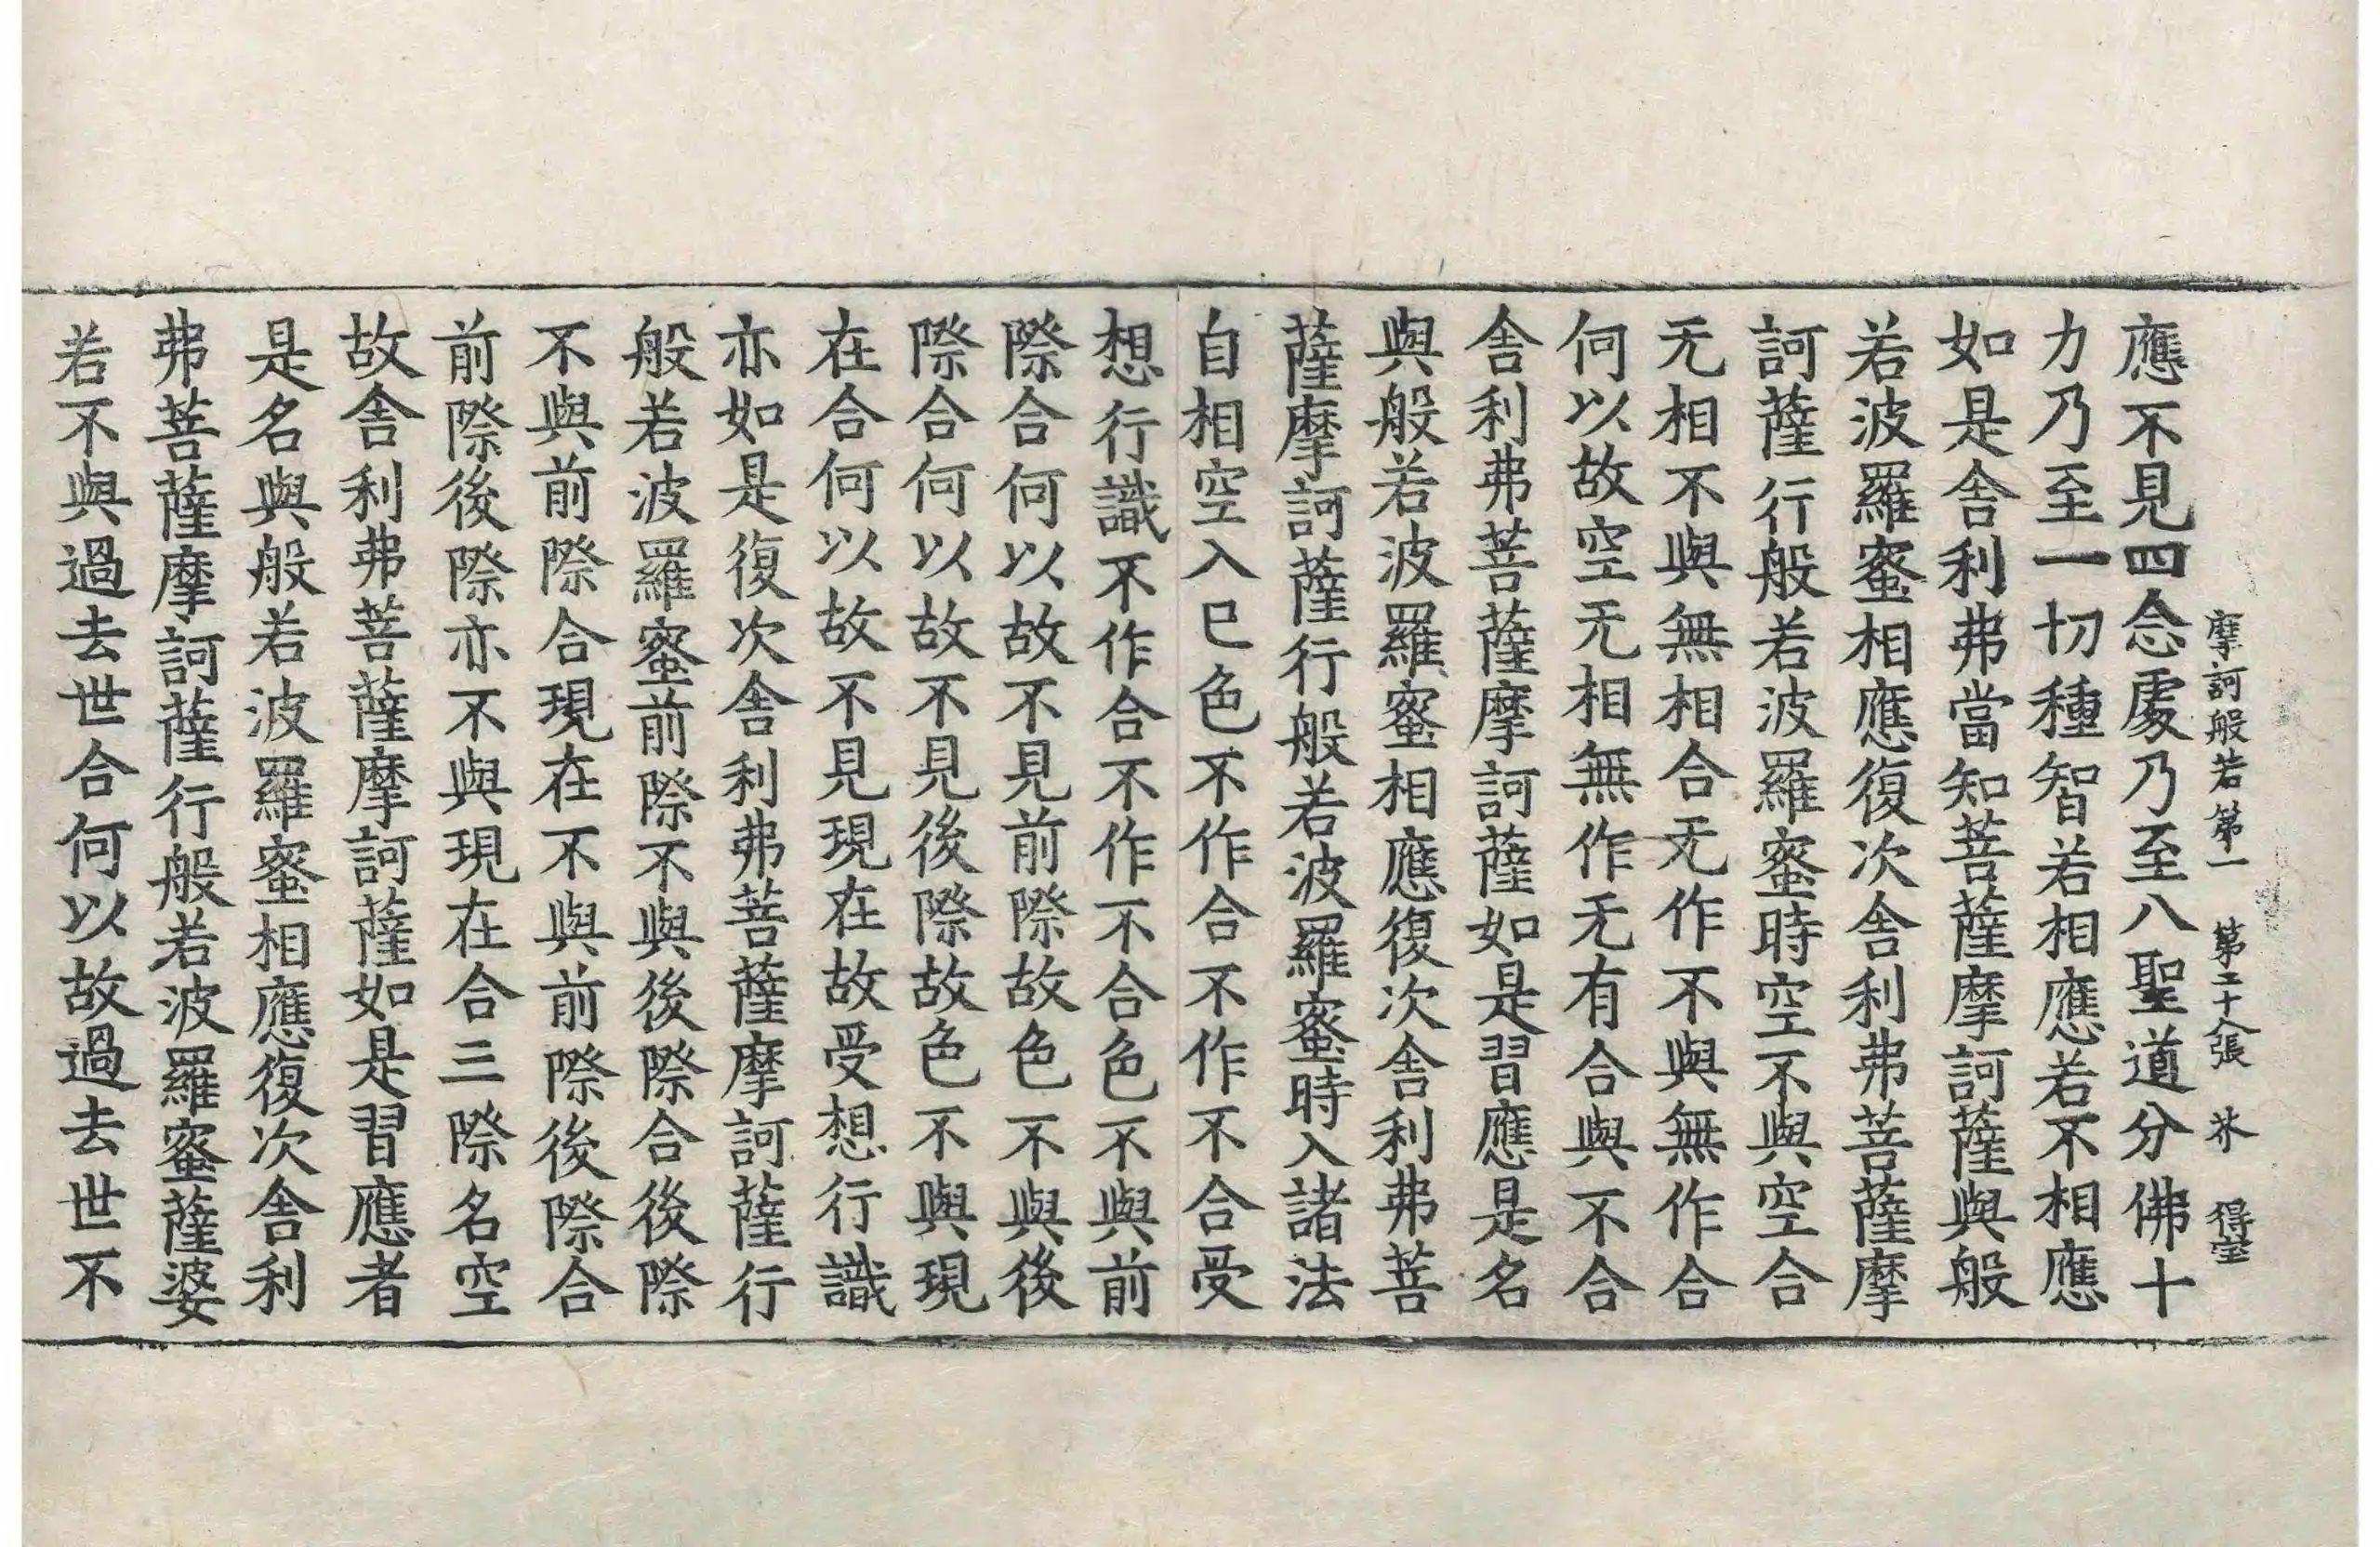 摩訶般若第一 第二十八張 芥 得宝
應不見四念處乃至八聖道分佛十
力乃至一切種智若相應若不相應
如是舍利弗當知菩薩摩訶薩與般
若波羅蜜相應復次舍利弗菩薩摩
訶薩行般若波羅蜜時空不與空合
无相不與無相合无作不與無作合
何以故空无相無作无有合與不合
舍利弗菩薩摩訶薩如是習應是名
與般若波羅蜜相應復次舍利弗菩
薩摩訶薩行般若波羅蜜時入諸法
自相空入已色不作合不作不合受
想行識不作合不作不合色不與前
際合何以故不見前際故色不與後
際合何以故不見後際故色不與現
在合何以故不見現在故受想行識
亦如是復次舍利弗菩薩摩訶薩行
般若波羅蜜前際不與後際合後際
不與前際合現在不與前際後際合
前際後際亦不與現在合三際名空
故舍利弗菩薩摩訶薩如是習應者
是名與般若波羅蜜相應復次舍利
弗菩薩摩訶薩行般若波羅蜜薩婆
若不與過去世合何以故過去世不